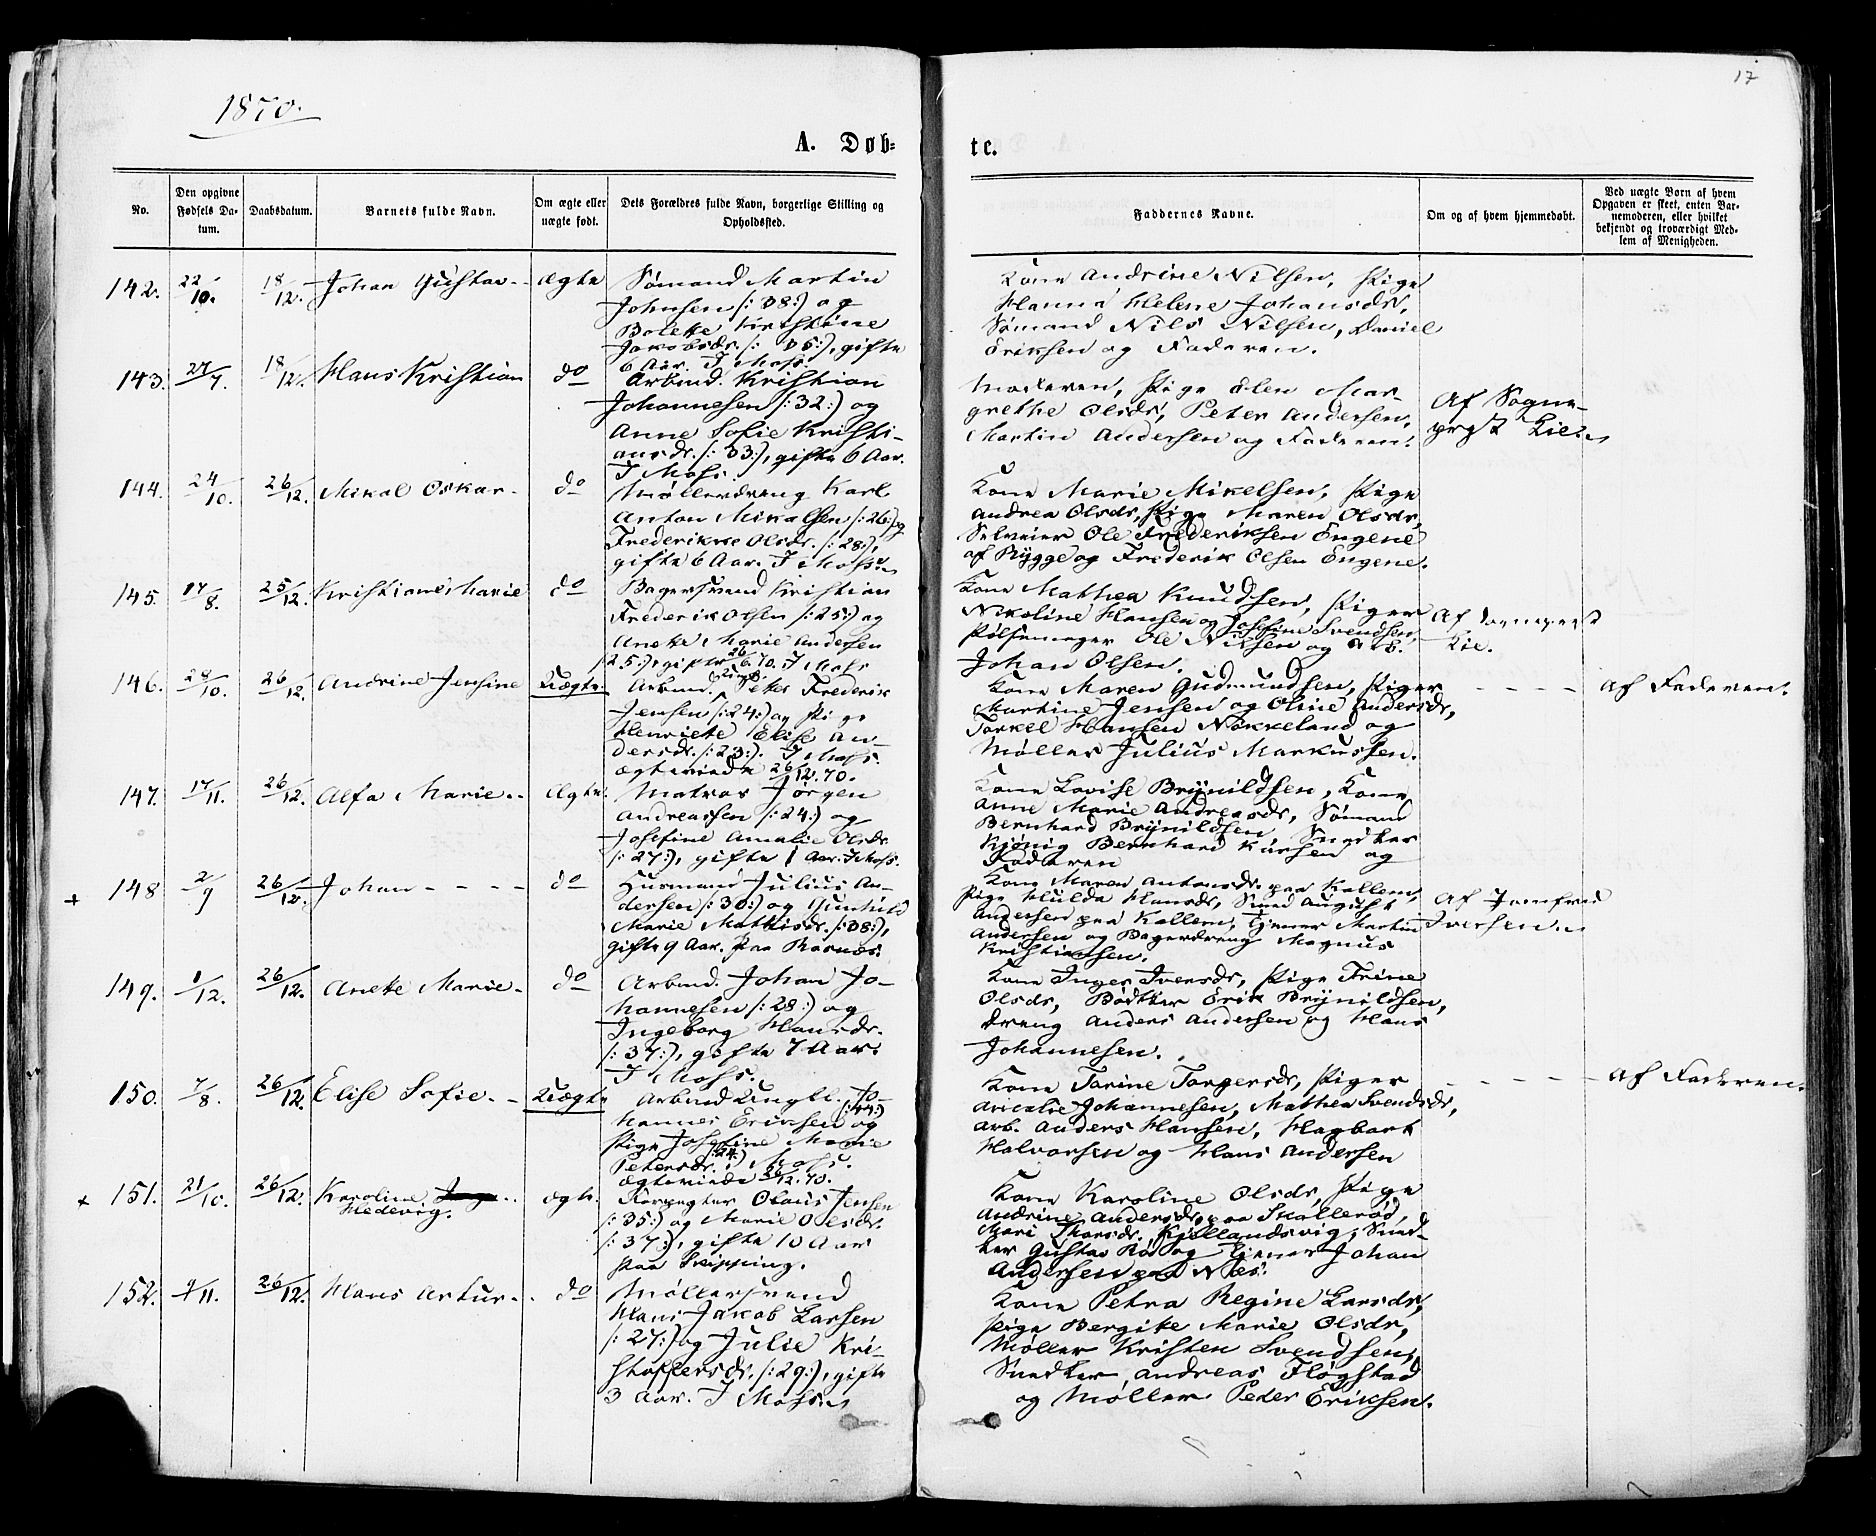 1870.
17
A. Døb-
te.
No.
Den opgivne
Fødsels Da-
tum.
Daabsdatum.
Barnets fulde Navn.
Om ægte eller
uægte født.
Dets Forældres fulde Navn, borgerlige Stilling og
Opholdssted.
Faddernes Navne.
Om og af hvem hjemmedøbt.
Ved uægte Børn af hvem
Opgaven er skeet, enten Bar-
nemoderen, eller hvilket
bekjendt og troværdigt Med-
lem af Menigheden.
142. 22/10. 18/12. Johan Gustav - ægte
Sømand Martin
Johnsen (: 38 :) og
Bolette Kristine
Jakobsdr. (: 35 :), gifte
6 Aar. I Moss.
Kone Andrine Nilsen, Pige
Hanna Helene Johansdr,
Sømand Nils Nilsen, Daniel
Eriksen og Faderen.
143. 27/7. 18/12. Hans Kristian do
Arbmd. Kristian
Johannesen (: 32 :) og
Anne Sofie Kristi-
ansdr. (: 33 :), gifte 6 Aar.
I Moss.
Moderen, Pige Elen Mar-
grethe Olsdr, Peter Andersen,
Martin Andersen og Faderen.
Af Sogne-
prest Lie.
144. 24/10. 26/12. Mikal Oskar - do
Møllerdreng Karl
Anton Mikalsen (: 26 :) og
Frederikke Olsdr. (: 28 :),
gifte 6 Aar. I Moss
Kone Marie Mikelsen, Pige
Andrea Olsdr, Pige Maren Olsdr,
Selveier Ole Frederiksen Engene
af Rygge og Frederik Olsen Engene.
145. 17/8. 25/12. Kristiane Marie do
Bagersvend Kristian
Frederik Olsen (: 25 :) og
Anette Marie Andersen
(: 25 :), gifte 26/6. 70. I Moss
Kone Mathea Knudsen, Piger
Nikoline Hansen og Josefine Svendsen,
Pølsemager Ole Nilsen og Arb.
Johan Olsen.
Af Sogneprest
Lie.
146. 28/10. 26/12. Andrine Jensine Uægte
Arbmd. Ungk. Peter Frederik
Jensen (: 24 :) og Pige
Henriette Elise An-
dersdr. (: 23 :). I Moss.
Ægteviede 26/12. 70.
Kone Maren Gudmundsen, Piger
Martine Jensen og Oline Andersdr,
Torkel Hansen Nøkkeland og
Møller Julius Markussen.
- - - - af Faderen.
147. 17/11. 26/12. Alfa Marie - ægte.
Matros Jørgen
Andreassen (: 24 :) og
Josefine Amalie Olsdr.
(: 27 :), gifte 1 Aar. I Moss.
Kone Lovise Brynildsen, Kone
Anne Marie Andreasdr, Sømand
Bernhard Brynildsen, Snedker
Bernhard og
Faderen
+ 148 2/9 26/12. Johan - - - - do
Husmand Julius An-
dersen (: 30 :) og Gunhild
Marie Mathisdr. (: 38 :),
gifte 9 Aar. Paa Rosnæs.
Kone Maren Antonsdr. paa Kallern,
Pige Hulda Hansdr, Smed August
Andersen paa Kallern, Tjener Martin
Andersen og Bagerdreng Magnus
Kristiansen.
Af Jomfru
Iversen.
149. 1/12. 26/12. Anette Marie - do
Arbmd. Johan Jo-
hannesen (: 28 :) og
Ingeborg Hansdr.
(: 37 :), gifte 7 Aar.
I Moss.
Kone Inger Iversdr, Pige Trine
Olsdr, Bødker Erik Brynildsen,
Dreng Anders Andersen og Hans
Johannesen.
150. 7/8. 26/12. Elise Sofie - - Uægte
Arbmd Ungk. Jo-
hannes Eriksen (: 44 :) og
Pige Josefine Marie
Petersdr. (: 24 :) I Moss.
Ægteviede 26/12. 70.
Kone Tarine Torgersdr, Piger
Amalie Johannesen, Mathea Svendsdr,
Arb. Anders Hansen, Hagbart
Halvorsen og Hans Andersen
- - - - af Faderen.
+ 151. 21/10. 26/12. Karoline
Hedevig. ægte.
Forpagter Olaus Jensen
(: 35 :) og Marie Olsdr.
(: 37 :), gifte 10 Aar
paa Reipping.
Kone Karoline Olsdr, Pige
Andrine Andersdr. paa Skallerød,
Mari Thorsdr. Kjellandsvig, Sned-
ker Gustav Rød og Tjener Johan
Andersen paa Næs.
152. 9/11. 26/12. Hans Artur - - do
Møllersvend
Hans Jakob Larsen
(: 27 :) og Julie Kri-
stoffersdr. (: 29 :), gifte
3 Aar. I Moss
Kone Petra Regine Larsdr,
Pige Bergite Marie Olsdr,
Møller Kristen Svendsen,
Snedker Andreas Fløgstad
og Møller Peder Eriksen.